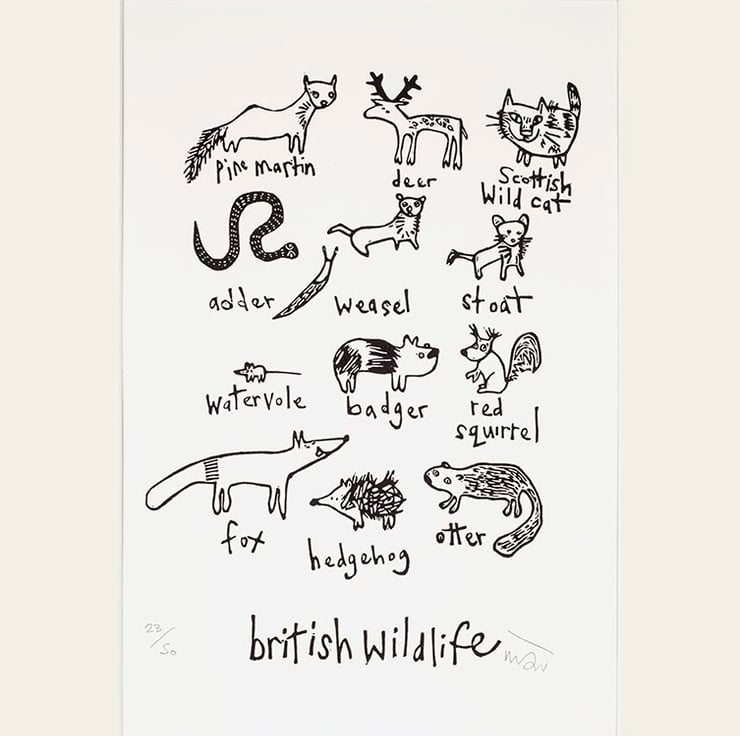 pine martin
deer
Scottish
Wild cat
adder
weasel
stoat
watervole
badger
red
squirrel
fox
hedgehog
otter
british wildlife
23/50